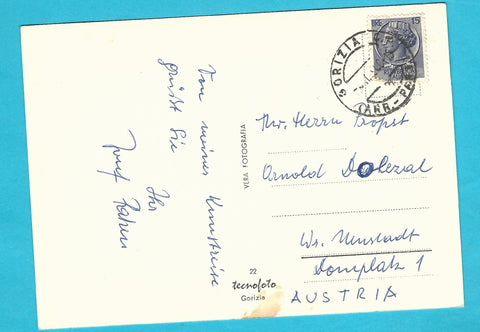 Von meiner Kunstreise
grüßt Sie
Ihr
Josef
VERA FOTOGRAFIA
22
tecnofoto
Gorizia
15
GORIZIA
ARR.-
Hr. Herrn Propst
Arnold Dolezal
Wr. Neustadt
Domplatz 1
AUSTRIA